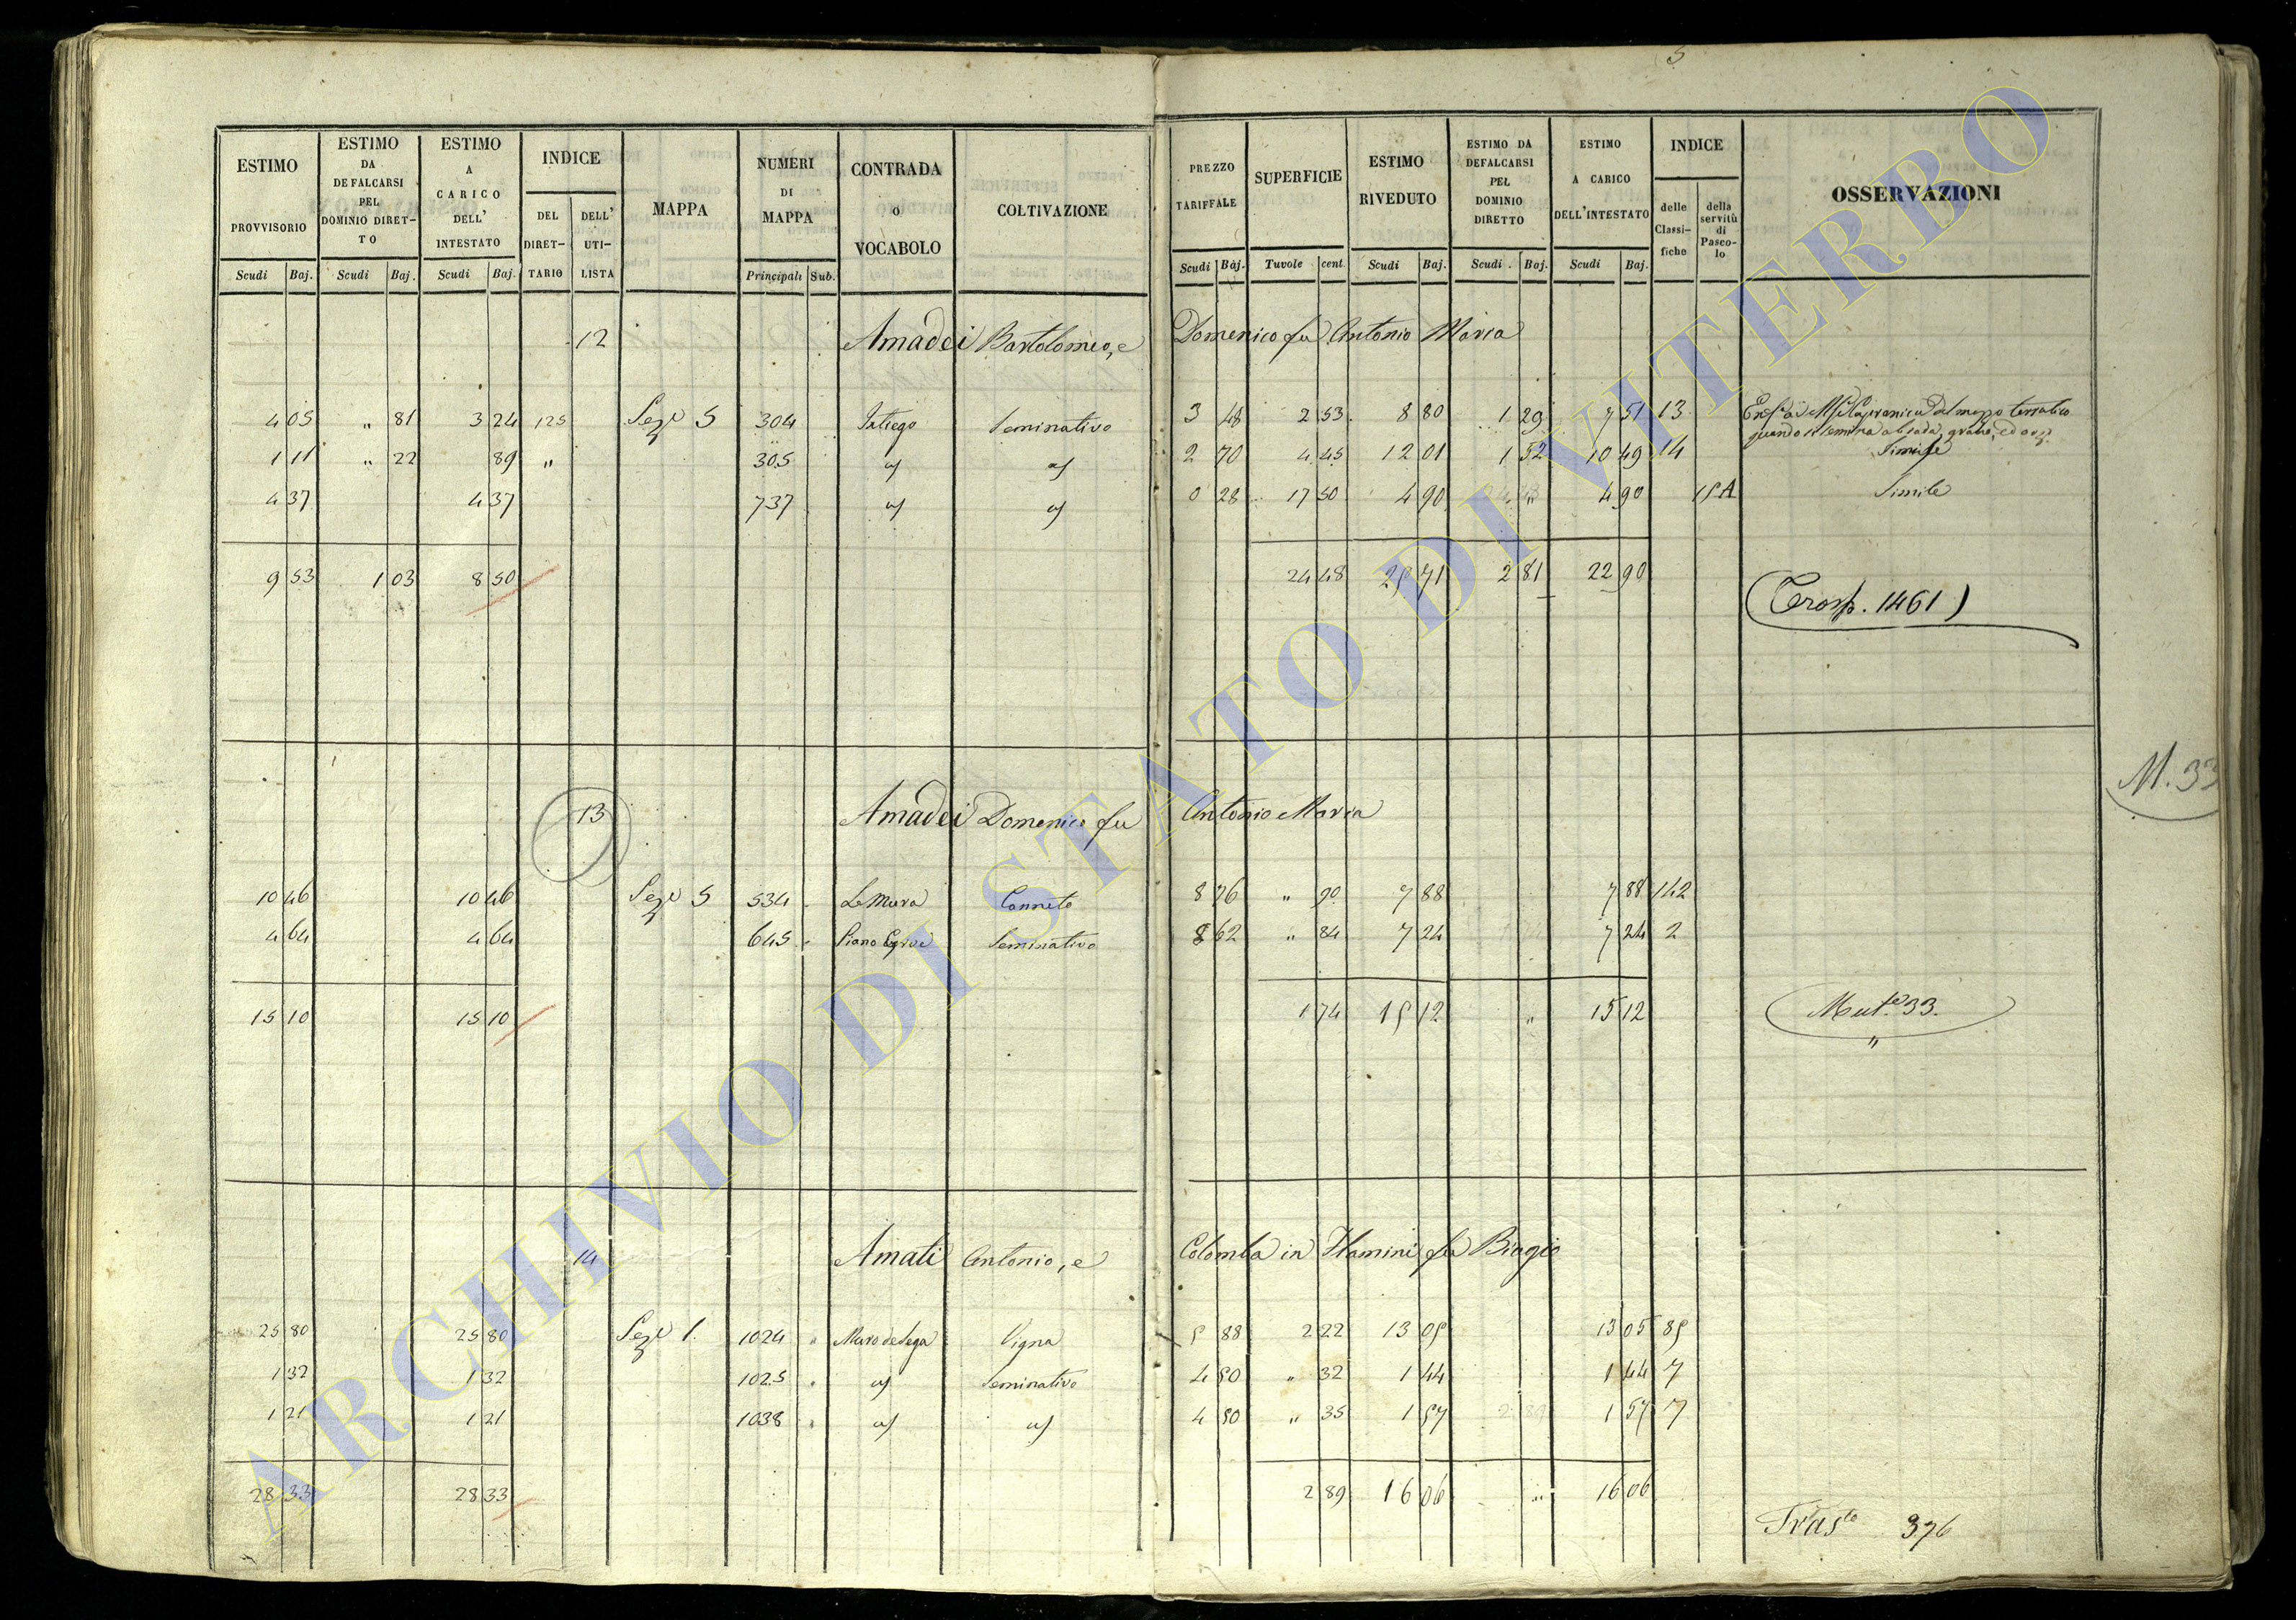 5
ESTIMO PROVVISORIO
ESTIMO DA DEFALCARSI PEL DOMINIO DIRET-TO
ESTIMO A CARICO DELL' INTESTATO
INDICE
DEL DIRET-TARIO
DELL' UTI-LISTA
MAPPA
NUMERI DI MAPPA
CONTRADA O VOCABOLO
COLTIVAZIONE
PREZZO TARIFFALE
SUPERFICIE
ESTIMO RIVEDUTO
ESTIMO DA DEFALCARSI PEL DOMINIO DIRETTO
ESTIMO A CARICO DELL'INTESTATO
INDICE
delle Classi-fiche
della servitù di Pasco-lo
OSSERVAZIONI
Scudi Baj. Scudi Baj. Scudi Baj. Principali Sub. Scudi Baj. Tavole cent. Scudi Baj. Scudi Baj. Scudi Baj.
12 Amadei Bartolomeo, e Domenico fu Antonio Maria
4 05 " 81 3 24 125 Sez.e 5 304 seminativo 3 48 2 53 8 80 1 29 7 51 13
quando si semina a biada, grano, ed orzo
1 11 " 22 89 " 305 2 70 4 45 12 01 1 52 10 49 14 Simile
4 37 4 37 737 0 28 17 50 4 90 " 4 90 15A Simile
9 53 1 03 8 50 24 48 25 71 2 81 22 90
(Trasp. 1461)
M. 33
13 Amadei Domenico fu Antonio Maria
10 46 10 46 Sez.e 5 534 Le Mura Canneto 8 76 " 90 7 88 7 88 142
4 64 4 64 645 seminativo 8 62 " 84 7 24 7 24 2
15 10 15 10 1 74 15 12 " 15 12
Mut.e 33.
"
14 Amati Antonio, e Colomba in Flamini fu Biagio
25 80 25 80 Sez.e 1. 1024 " Vigna 5 88 2 22 13 05 13 05 85
1 32 1 32 1025 seminativo 4 50 " 32 1 44 1 44 7
1 21 1 21 1038 4 50 " 35 1 57 1 57 7
28 33 28 33 2 89 16 06 " 16 06
Tras.to 376
ARCHIVIO DI STATO DI VITERBO